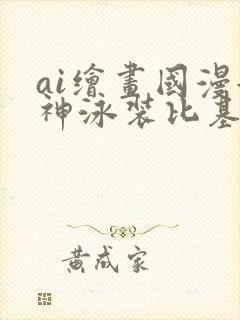 ai繪畫國漫
神泳裝比基
黃成家